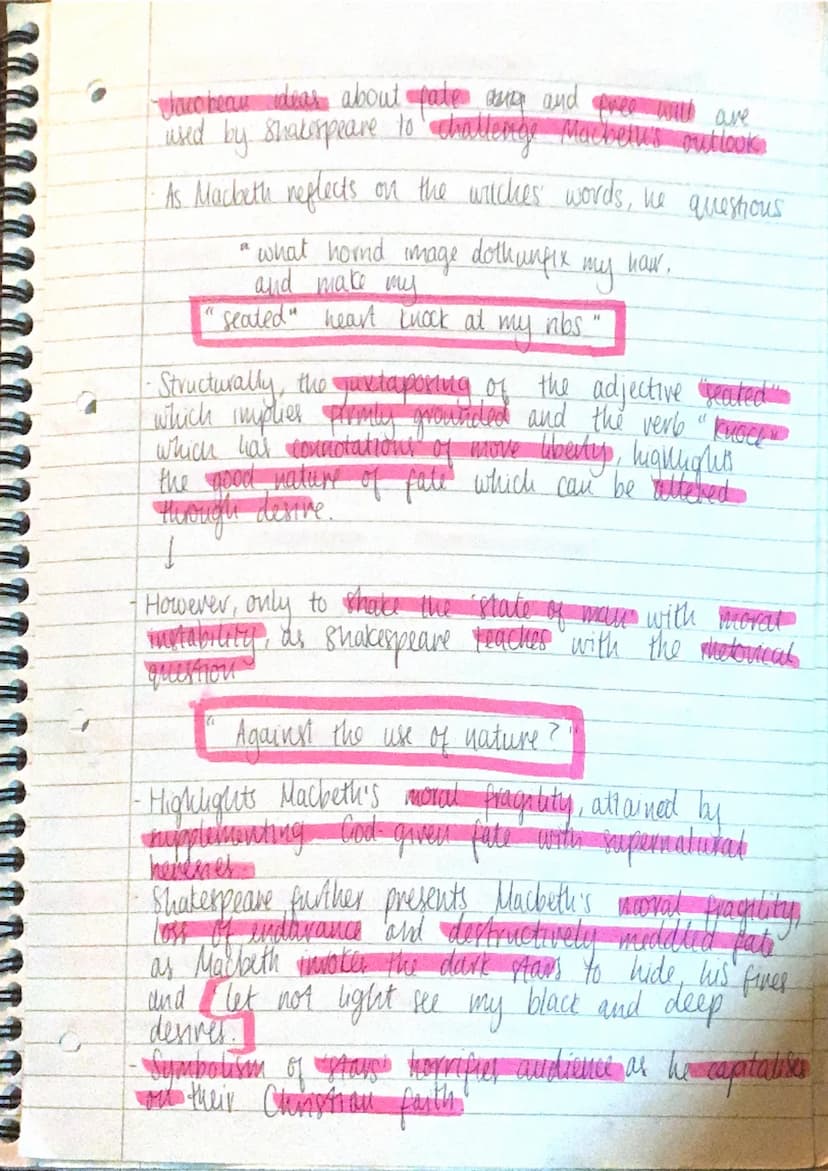 - Jacobean ideas about fate and and free will are
used by Shakespeare to challenge Macbeth's outlook
· As Macbeth reflects on the witches' words, he questions
"what horrid image doth unfix my hair,
and make my
"seated" heart knock at my ribs"
· Structurally, the juxtaposing of the adjective "seated"
which implies firmly grounded and the verb "knock"
which has connotations of move liberty, highlights
the good nature of fate which can be altered
through desire.
↓
- However, only to shake the 'state of man' with moral
instability, as Shakespeare teaches with the rhetorical
question
"Against the use of nature?"
- Highlights Macbeth's moral fragility, attained by
supplementing God-given fate with supernatural
heresies.
Shakespeare further presents Macbeth's moral fragility,
loss of endurance and destructively meddled fate
as Macbeth invokes the dark stars to hide his fires
and [let not light see my black and deep
desires.]
- Symbolism of 'stars' horrifies audience as he capitalises
on their Christian faith